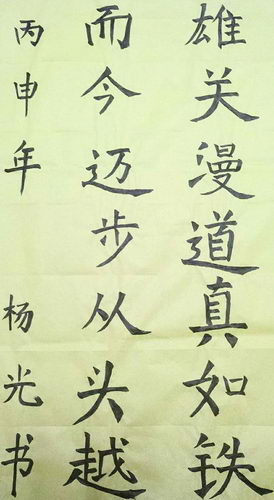 雄关漫道真如铁
而今迈步从头越
丙申年 杨光书